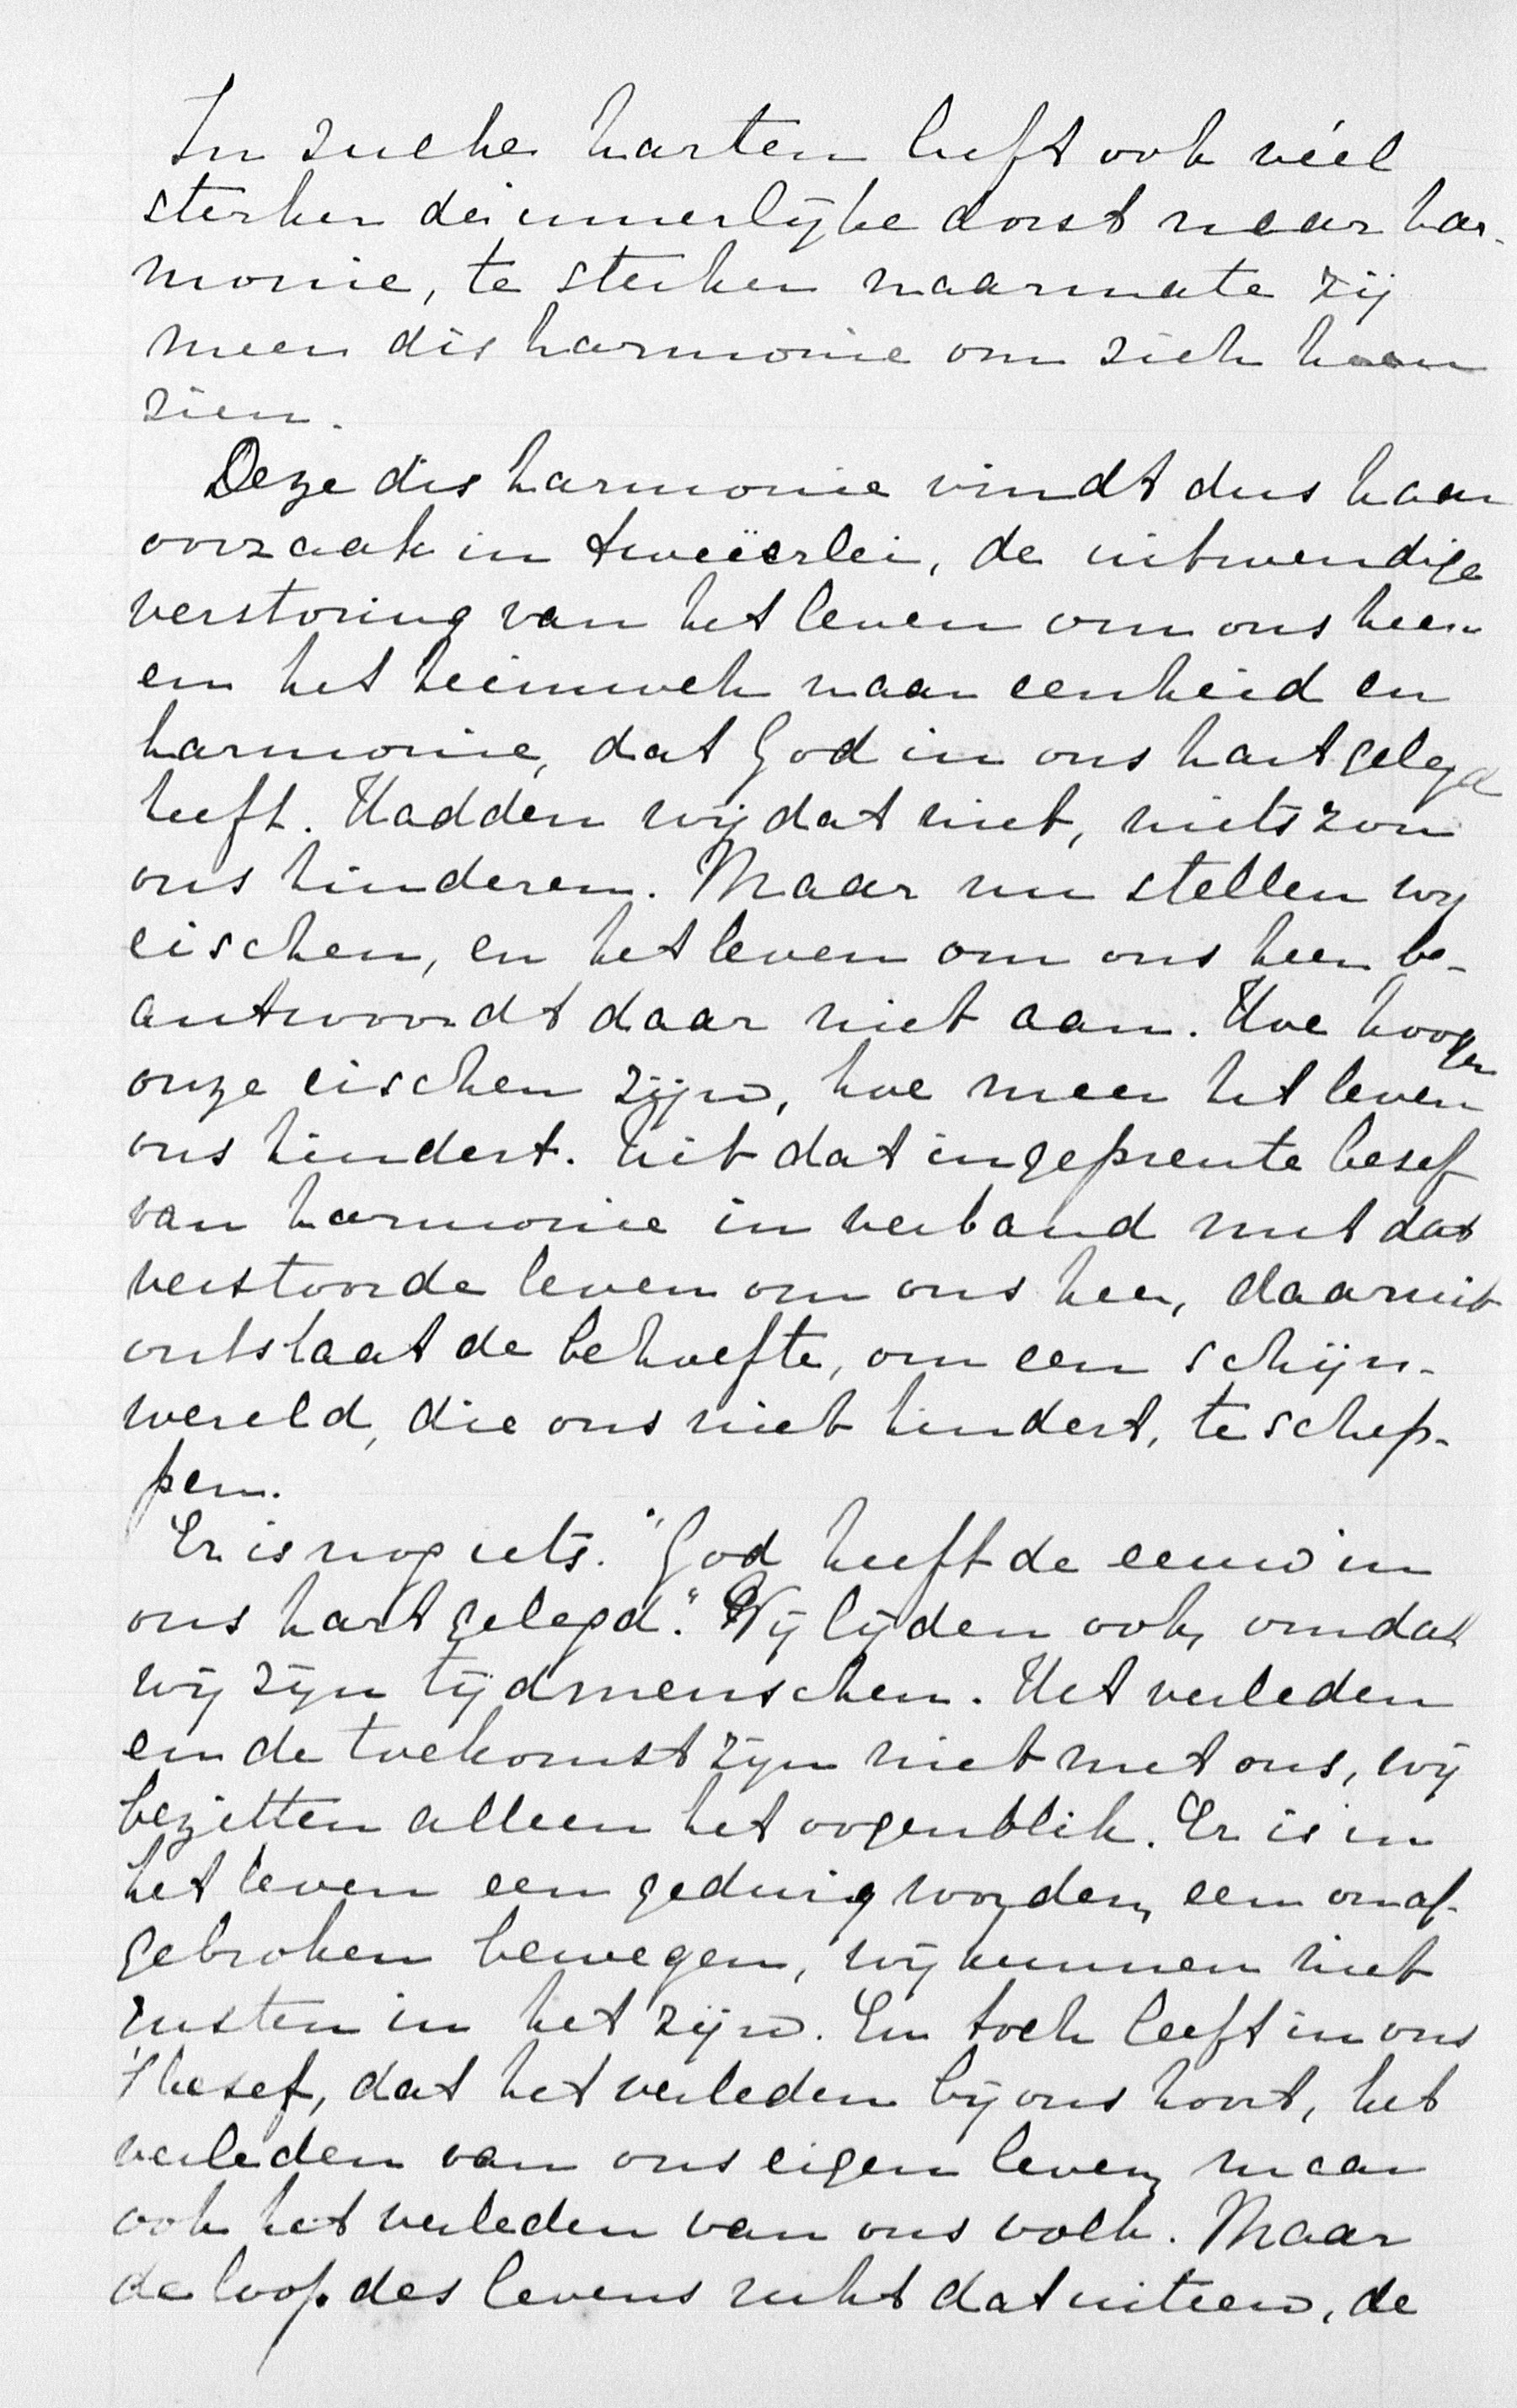 In zulke harten leeft ook véél
sterker de innerlijke dorst naar har-
monie, te sterker naarmate zij
meer disharmonie om zich heen
zien.
Deze disharmonie vindt dus haar
oorzaak in tweeërlei, de uitwendige
verstoring van het leven om ons heen
en het heimweh naar eenheid en
harmonie, dat God in ons hart gelegd
heeft. Hadden wij dat niet, niets zou
ons hinderen. Maar nu stellen wij
eischen, en het leven om ons heen be-
antwoordt daar niet aan. Hoe hooger
onze eischen zijn, hoe meer het leven
ons hindert. Uit dat ingeprente besef
van harmonie in verband met dat
verstoorde leven om ons heen, daaruit
ontstaat de behoefte, om een schijn-
wereld, die ons niet hindert, te schep-
pen.
Er is nog iets. "God heeft de eeuw in
ons hart gelegd." Wij lijden ook, omdat
wij zijn tijdmenschen. Het verleden
en de toekomst zijn niet met ons, wij
bezitten alleen het oogenblik. Er is in
het leven een gedurig worden, een onaf-
gebroken bewegen, wij kunnen niet
rusten in het zijn. En toch leeft in ons
't besef, dat het verleden bij ons hoort, het
verleden van ons eigen leven, maar
ook het verleden van ons volk. Maar
de loop des levens rukt dat uiteen, de